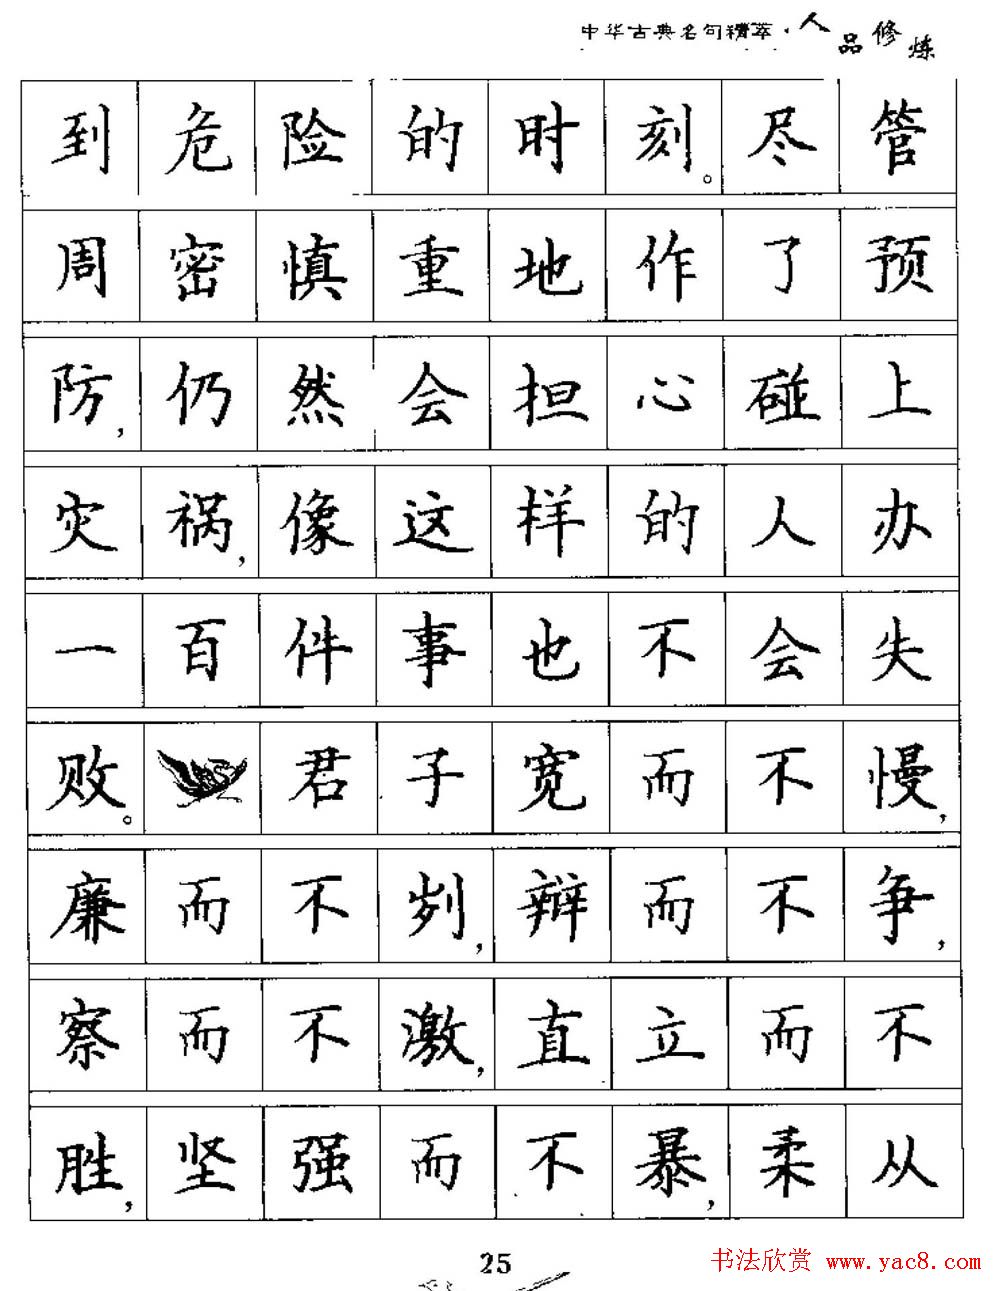 中华古典名句精萃·人品修炼
到危险的时刻。尽管
周密慎重地作了预
防,仍然会担心碰上
灾祸,像这样的人办
一百件事也不会失
败。君子宽而不慢,
廉而不刿,辩而不争,
察而不激,直立而不
胜,坚强而不暴,柔从
25
书法欣赏 www.yac8.com